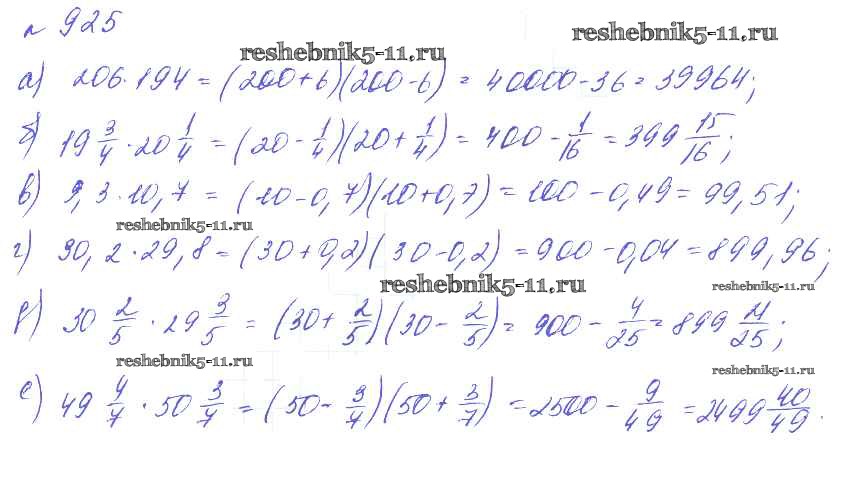 № 925
reshebnik5-11.ru
reshebnik5-11.ru
а) 206·194 = (200+6)(200-6) = 40000-36 = 39964;
б) 19 3/4 · 20 1/4 = (20 - 1/4)(20 + 1/4) = 400 - 1/16 = 399 15/16;
в) 9,3·10,7 = (10-0,7)(10+0,7) = 100-0,49 = 99,51;
reshebnik5-11.ru
г) 30,2·29,8 = (30+0,2)(30-0,2) = 900-0,04 = 899,96;
reshebnik5-11.ru
reshebnik5-11.ru
д) 30 2/5 · 29 3/5 = (30 + 2/5)(30 - 2/5) = 900 - 4/25 = 899 21/25;
reshebnik5-11.ru
reshebnik5-11.ru
е) 49 4/7 · 50 3/7 = (50 - 3/7)(50 + 3/7) = 2500 - 9/49 = 2499 40/49.